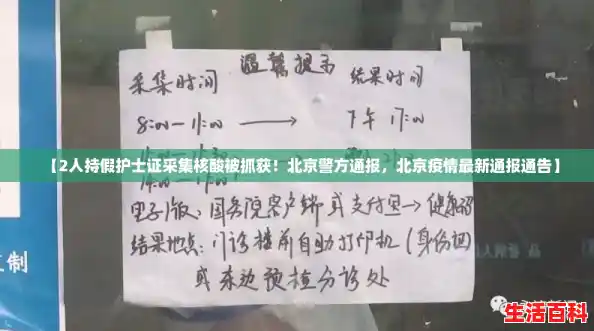 温馨提示
采集时间 结果时间
8:00—11:00 → 下午 17:00
【2人持假护士证采集核酸被抓获!北京警方通报,北京疫情最新通报通告】
电子版:国务院客户端或支付宝→健康码
结果地点:门诊楼前自助打印机(身份证)
或东边预检分诊处
制
生活百科